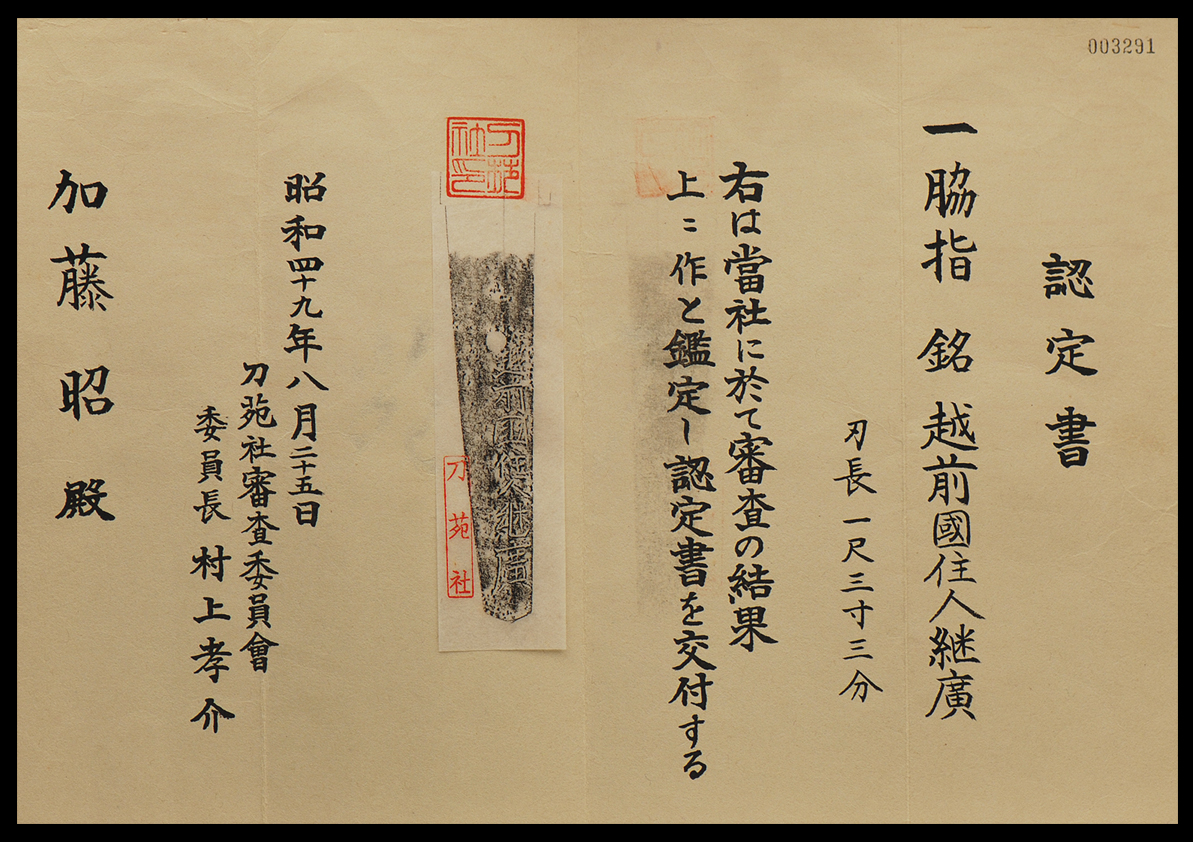 003291
認定書
一脇指 銘 越前國住人継廣
刃長 一尺三寸三分
右は當社に於て審査の結果
上ニ作と鑑定し認定書を交付する
刀苑社印
越前国住人継廣
刀苑社
昭和四十九年八月二十五日
刀苑社審査委員會
委員長 村上孝介
加藤昭殿